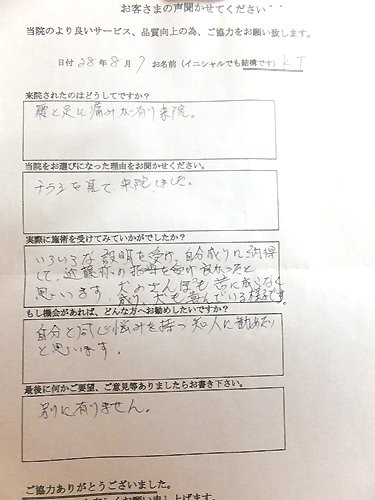 お客さまの声聞かせてください
当院のより良いサービス、品質向上の為、ご協力をお願い致します。
日付 28年 8月 7 お名前（イニシャルでも結構です）K T
来院されたのはどうしてですか？
腰と足に痛みが有り来院。
当院をお選びになった理由をお聞かせください。
チラシを見て、来院しました。
実際に施術を受けてみていかがでしたか？
いろいろな説明を受け、自分成りに納得
して、近藤 の指導を受け良かったと
思います。犬のさんぽも苦に成らなく
成り、犬も喜んでいる様です
もし機会があれば、どんな方へお勧めしたいですか？
自分と同じ悩みを持つ知人に勧めたい
と思います。
最後に何かご要望、ご意見等ありましたらお書き下さい。
別に有りません。
ご協力ありがとうございました。
お願い申し上げます。